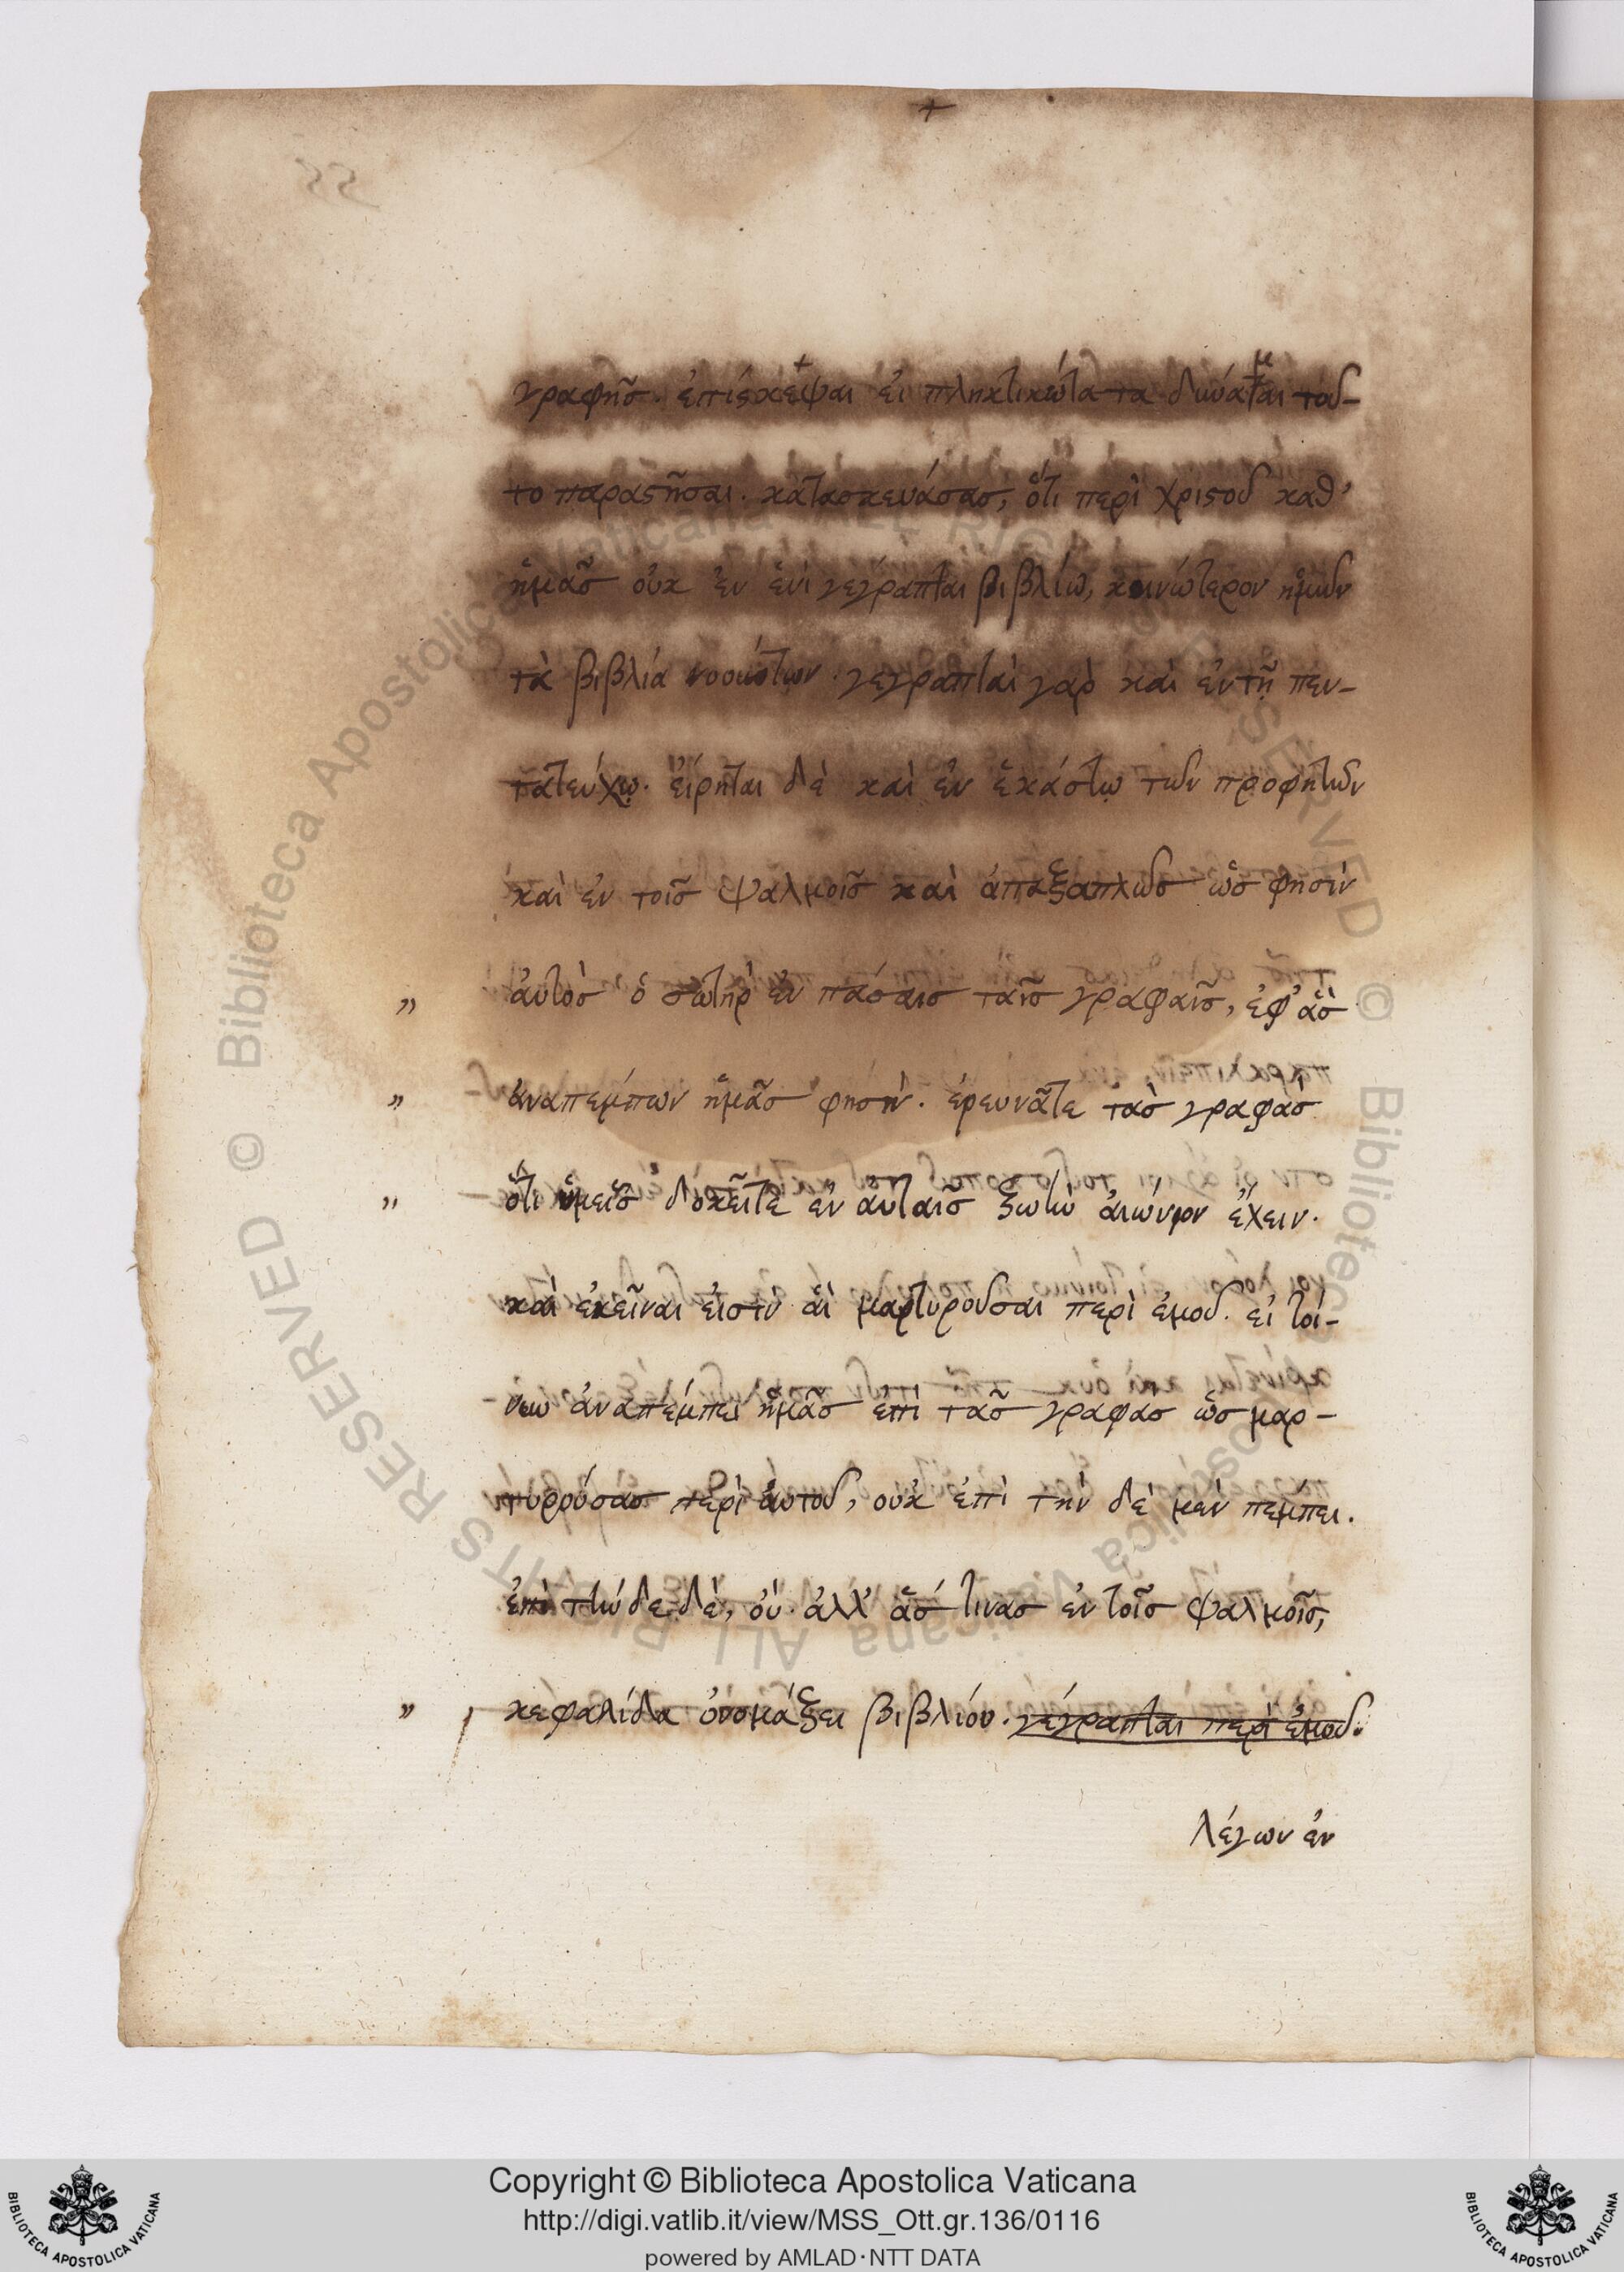 +
55
γραφῆς. ἐπίσκεψαι εἰ πληκτικώτατα δύναμαι τοῦ-
το παραστῆσαι. κατασκευάσας, ὅτι περὶ χριστοῦ καθ'
ἡμᾶς οὐκ ἐν ἑνὶ γέγραπται βιβλίω, κοινώτερον ἡμῶν
τὰ βιβλία νοούντων. γέγραπται γὰρ καὶ ἐν τῇ πεν-
τατεύχῳ. εἴρηται δὲ καὶ ἐν ἑκάστῳ τῶν προφητῶν
καὶ ἐν τοῖς ψαλμοῖς καὶ ἁπαξαπλῶς ὥς φησὶν
„ αὐτὸς ὁ σωτὴρ ἐν πάσαις ταῖς γραφαῖς, ἐφ' ἃς
„ ἀναπέμπων ἡμᾶς φησὶν. ἐρευνᾶτε τὰς γραφὰς
„ ὅτι ὑμεῖς δοκεῖτε ἐν αὐταῖς ζωὴν αἰώνιον ἔχειν.
καὶ ἐκεῖναι εἰσιν αἱ μαρτυροῦσαι περὶ ἐμοῦ. εἰ τοί-
νυν ἀναπέμπει ἡμᾶς ἐπὶ τὰς γραφὰς ὡς μαρ-
τυρούσας περὶ αὐτοῦ, οὐκ ἐπὶ τὴν δὲ μὲν πέμπει.
ἐπὶ τὴν δε δὲ, οὐ. ἀλλ' ἅς τινας ἐν τοῖς ψαλμοῖς,
„ κεφαλίδα ὀνομάζει βιβλίου. γέγραπται περὶ ἐμοῦ.
λέγων ἐν
Biblioteca Apostolica Vaticana ALL RIGHTS RESERVED ©
Copyright © Biblioteca Apostolica Vaticana
http://digi.vatlib.it/view/MSS_Ott.gr.136/0116
powered by AMLAD·NTT DATA
BIBLIOTECA APOSTOLICA VATICANA
BIBLIOTECA APOSTOLICA VATICANA